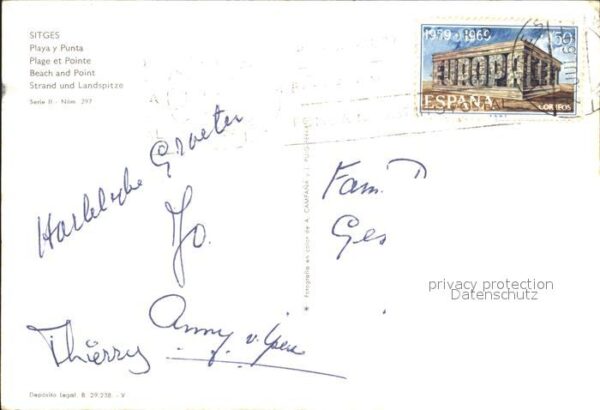 SITGES
Playa y Punta
Plage et Pointe
Beach and Point
Strand und Landspitze
Serie II - Núm. 297
1959 - 1969
EUROPA
ESPAÑA
CORREOS
Groeten
Jo.
Anny v.
Thierry
Fam.
Ges
* Fotografía en color de A. CAMPAÑA y J.
privacy protection
Datenschutz
Depósito Legal. B. 29.238. - V